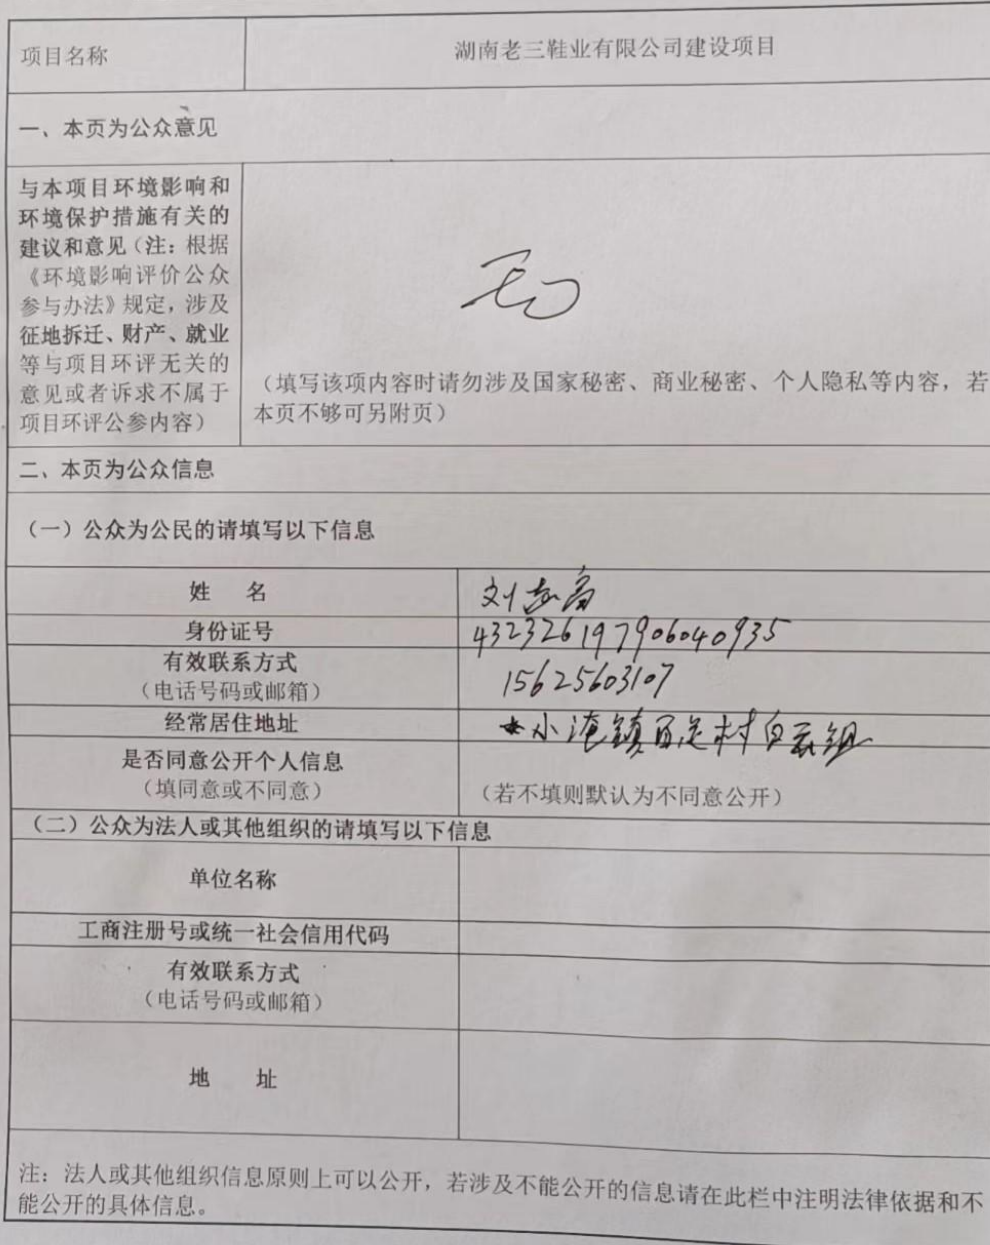 项目名称
湖南老三鞋业有限公司建设项目
一、本页为公众意见
与本项目环境影响和
环境保护措施有关的
建议和意见（注：根据
《环境影响评价公众
参与办法》规定，涉及
征地拆迁、财产、就业
等与项目环评无关的
意见或者诉求不属于
项目环评公参内容）
无
（填写该项内容时请勿涉及国家秘密、商业秘密、个人隐私等内容，若
本页不够可另附页）
二、本页为公众信息
（一）公众为公民的请填写以下信息
姓 名
刘志高
身份证号
432326197906040935
有效联系方式
（电话号码或邮箱）
15625603107
经常居住地址
小淹镇百足村白云组
是否同意公开个人信息
（填同意或不同意）
（若不填则默认为不同意公开）
（二）公众为法人或其他组织的请填写以下信息
单位名称
工商注册号或统一社会信用代码
有效联系方式
（电话号码或邮箱）
地 址
注：法人或其他组织信息原则上可以公开，若涉及不能公开的信息请在此栏中注明法律依据和不
能公开的具体信息。